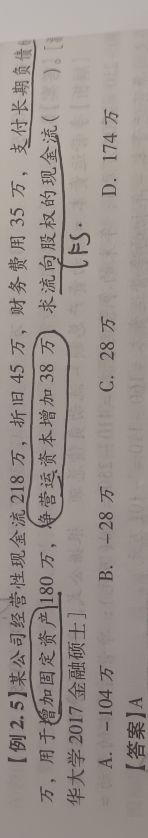 【例2.5】某公司经营性现金流218万，折旧45万，财务费用35万，支付长期负债
万，用于增加固定资产180万，净营运资本增加38万 求流向股权的现金流( )。[
CFS.
华大学2017金融硕士]
A. －104万 B. －28万 C. 28万 D. 174万
【答案】A